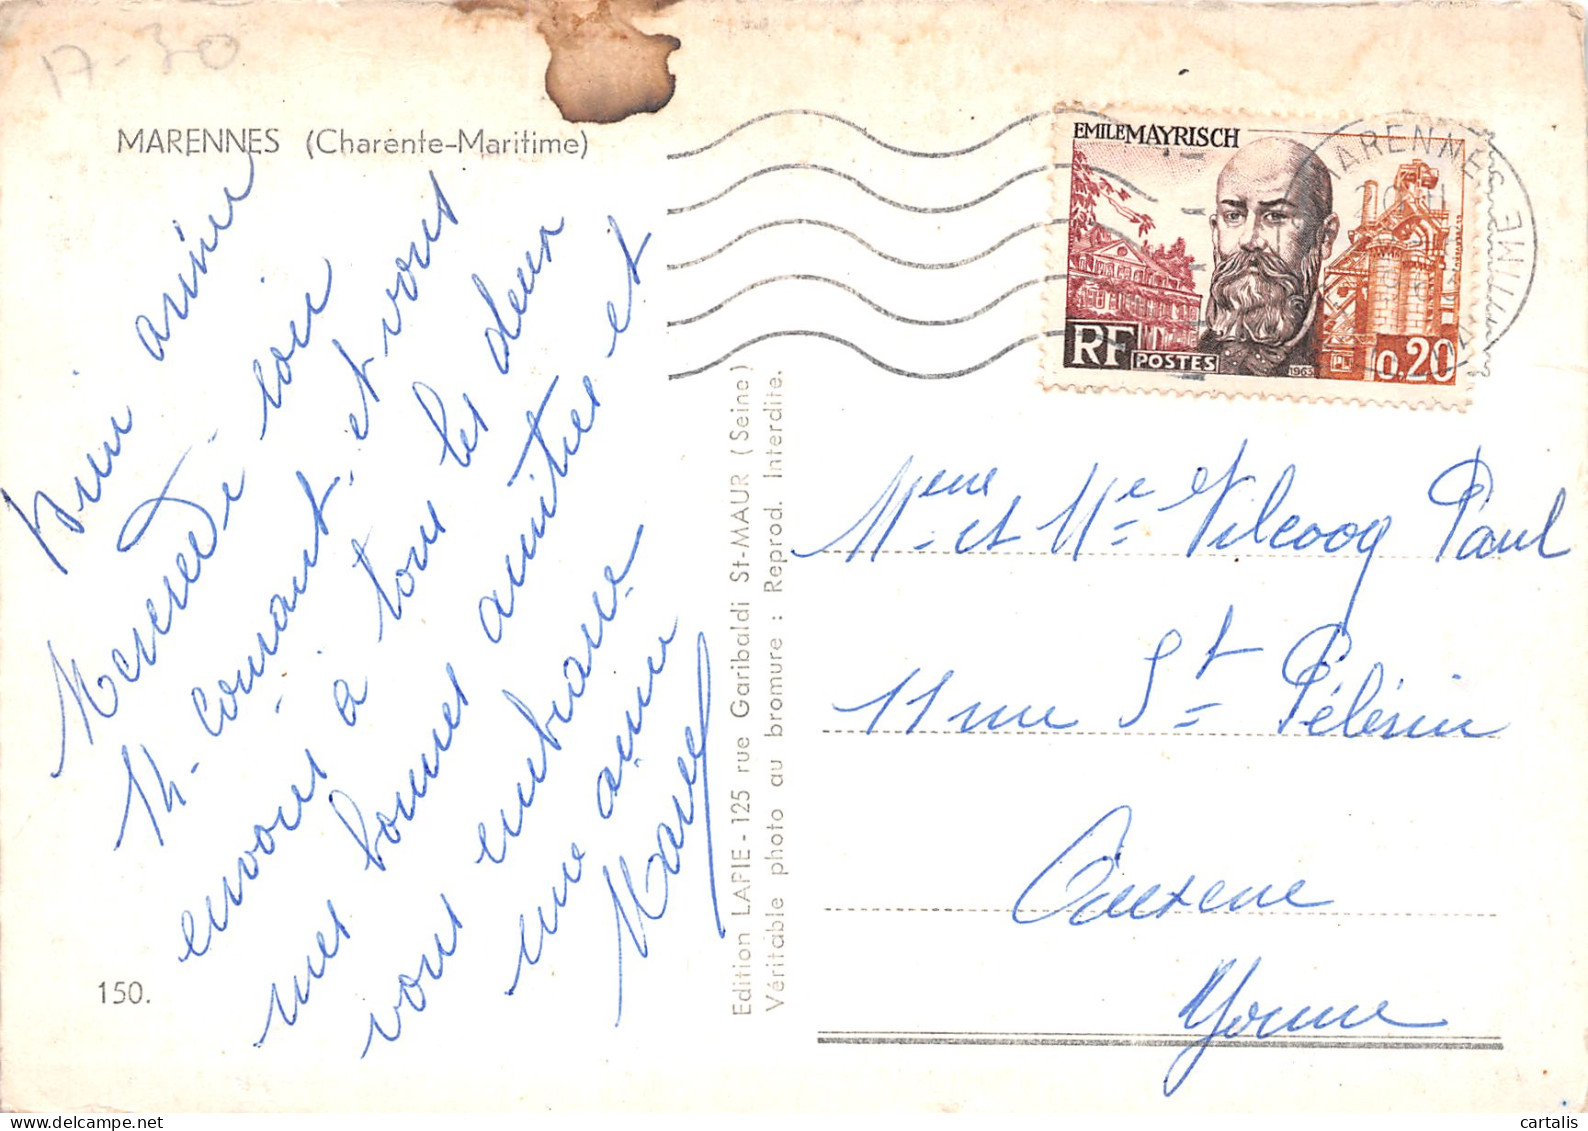 17-30
MARENNES (Charente-Maritime)
bien arrivée
Mercredi soir
th- Courant, et vous
envoie à tous les deux
mes bonnes amitiés et
vous embrasse
une amie
Marcel
150.
Edition LAPIE - 125 rue Garibaldi St-MAUR (Seine)
Véritable photo au bromure : Reprod. Interdite.
EMILE MAYRISCH
RF POSTES
1963
0,20
MARENNES
MARITIME
Mme et Mr Vilcoog Paul
11 rue St Pélérin
Auxerre
Yonne
cartalis